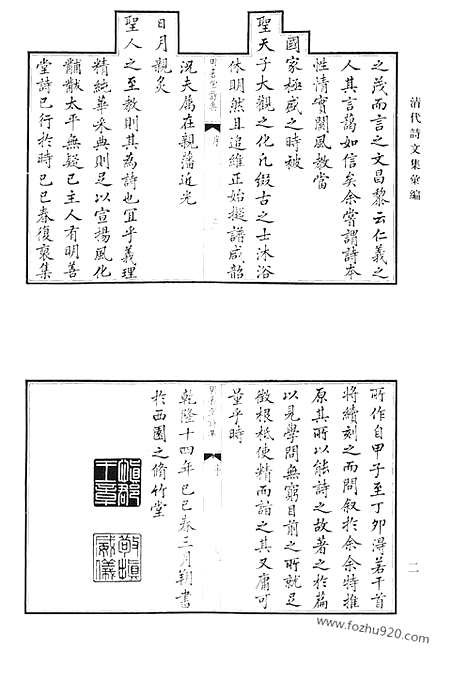 清代詩文集彙編
之茂而言之文昌黎云仁義之
人其言藹如信矣余嘗謂詩本
性情實關風教當
國家極盛之時被
聖天子大觀之化凡綴古之士沐浴
休明然且追維正始擬諸咸韶
況夫属在親藩近光
日月親炙
聖人之至教則其為詩也宜乎義理
精純華采典則足以宣揚風化
黼黻太平無疑已主人有明善
堂詩已行於時己巳春復裒集
二
所作自甲子至丁夘淂若干首
将續刻之而問叙於余余特推
原其所以能詩之故著之於篇
以見學問無窮目前之所就足
徵根柢使精而詣之其又庸可
量乎時
乾隆十四年己巳春三月朔書
於西園之脩竹堂
敬慎威儀
www.fozhu920.com